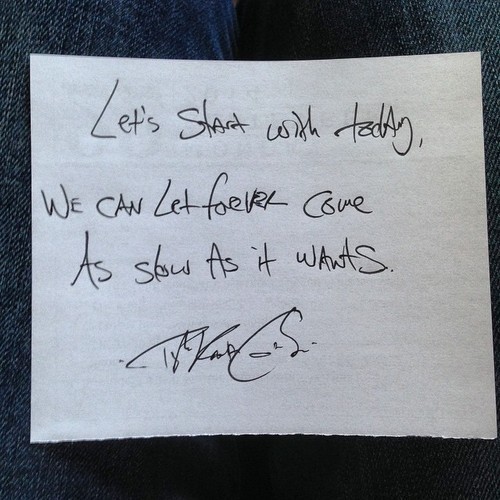 Let's Start with today,
WE CAN Let foREVER come
As slow As it WANtS.